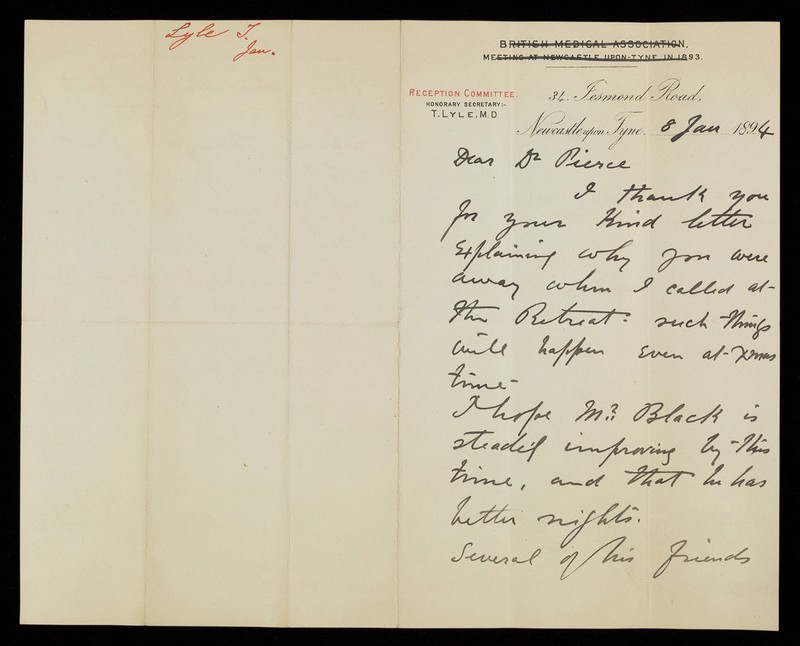 Lyle T.
Jan.
BRITISH MEDICAL ASSOCIATION,
MEETING AT NEWCASTLE UPON-TYNE IN 1893.
RECEPTION COMMITTEE.
HONORARY SECRETARY:-
T. LYLE, M.D.
34. Jesmond Road,
Newcastle upon Tyne, 8 Jan 1894
Dear Dr Pierce
I thank you
for your kind letter
explaining why you were
away when I called at
the Retreat: such things
will happen even at Xmas
time-
I hope Mr. Black is
steadily improving by this
time, and that he has
better nights.
Several of his friends